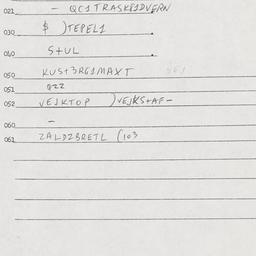 021 - QC1TRASK81DVERN
030 $ )TEPEL1
040 S+UL
050 KUS+3RG1MAXT
051 022
052 VEJKTOP )VEJKS+AF-
060 -
061 2ALD2BRETL (103